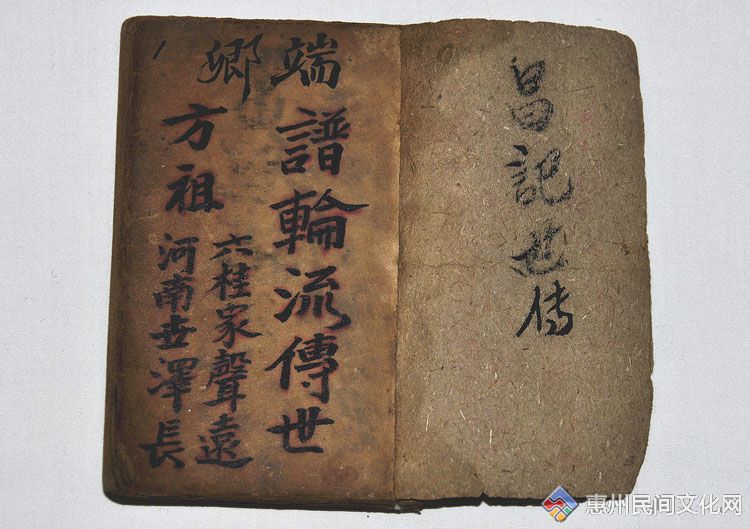 昌記世传
端鄉
譜輪流傳世
方祖
六桂家聲遠
河南世澤長
惠州民间文化网